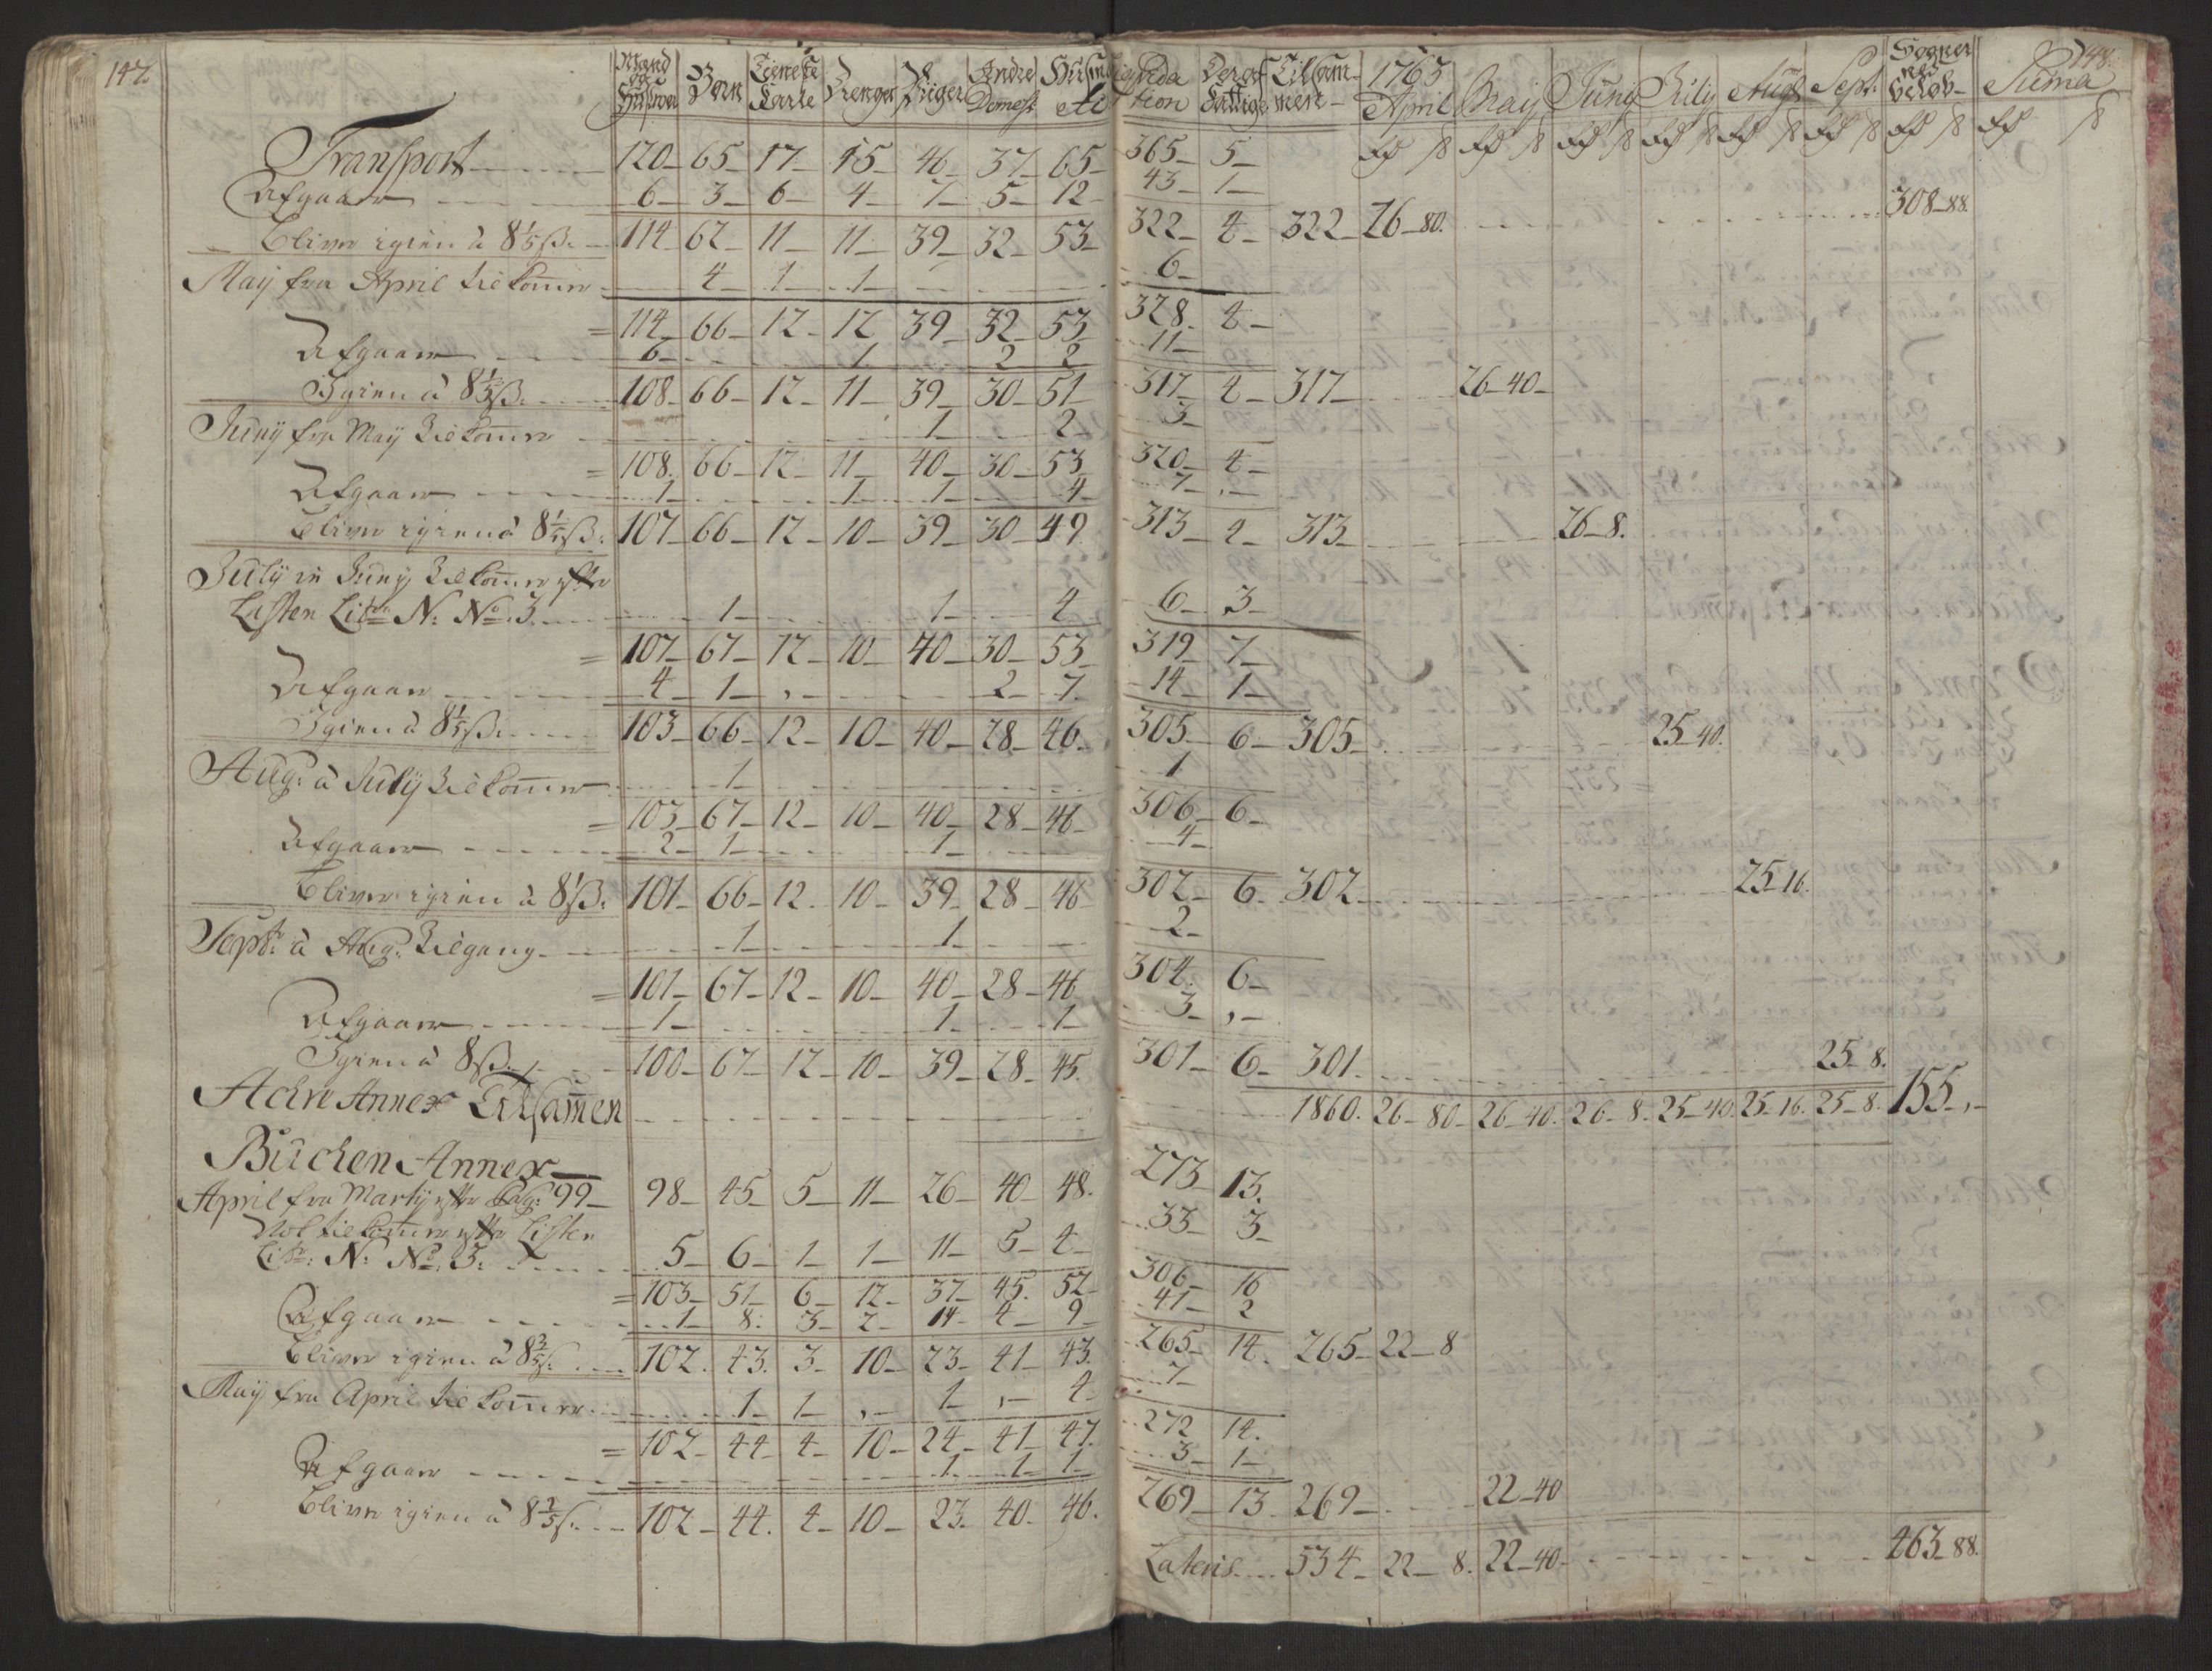 147. 148.
Mand og Hustroer | Børn | Tieneste Karle | Drenger | Piiger | Andre Domest. | Huusmd | Lei | qvida tion | Deraf Fattige | Tilsam- men | 1763 April | Maij | July | Aug. | Sept. | Sogner ned beløb | Suma
Transport 120 65 17 15 46 37 65 365 5
Afgaaer 6 3 6 4 7 5 12 43 1
bliver igien à 8 1/5 ß. 114 62 11 11 39 32 53 322 4 322 26 80. 308 88.
Maij fra April tilkommer 4 1 1 6
= 114 66 12 12 39 32 53 328. 4
Afgaaer 6 1 2 2 11
Igien à 8 1/5 ß. 108 66 12 11 39 30 51 317 4 317 26 40
Junij fra Maij tilkommer 1 2 3
= 108. 66 12 11 40 30 53 320 4
Afgaaer 1 1 1 4 7 ,
bliver igien à 8 1/5 ß. 107 66 12 10 39 30 49 313 4 313 26 8.
July in Junij tilkommer efter
Listen Litr. N: No. 3. 1 1 4 6 3
= 107 67 12 10 40 30 53 319 7
Afgaaer 4 1 , 2 7. 14 1
Igien à 8 1/5 ß. 103 66 12 10 40 28 46. 305 6 305 25 40.
Aug. à July tilkommer 1 1
= 103 67 12 10 40 28 46 306 6
Afgaaer 2 1 1 4
bliver igien à 8 ß. 101 66 12. 10 39 28 46 302 6 302 25 16.
Sept. à Aug. tilgang 1 1 2
= 101 67 12 10 40 28 46 304. 6
Afgaaer 1 1 1 3 ,
Igien à 8 ß. 100 67 12 10 39 28 45. 301 6 301. 25 8.
Annex Tilsammen 1860. 26 80 26 40. 26 8. 25 40. 25 16. 25 8. 155 ,
Buchen Annex
April fra Martij efter Pag: 99 98 45 5 11 26 40 48. 273 13.
tilkommer efter Listen
Litr: N: No. 3. 5 6 1 1 11 5 4 33 3
= 103 51 6 12 37 45. 52 306 16
Afgaaer 1 8. 3 2 14 4 9 41 2
bliver igien à 8 102. 43. 3 10 23 41 43. 265 14. 265 22 8
Maij fra April tilkommer 1 1 , 1 , 4 7
= 102 44 4 10 24 41 47. 272 14.
Afgaaer 1 1 1 3 1
bliver igien à 8 102 44. 4 10 23. 40. 46. 269 13 269 22 40
Lateris 534 22 8. 22 40. 463 88.